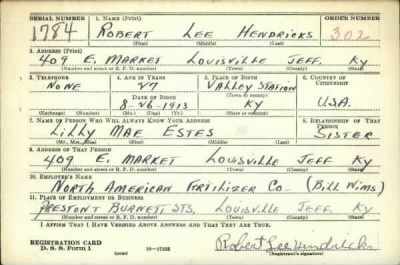 SERIAL NUMBER 1. NAME (Print) ORDER NUMBER
1784 ROBERT LEE HENDRICKS 302
(First) (Middle) (Last)
2. ADDRESS (Print)
409 E. MARKET LOUISVILLE JEFF. KY
(Number and street or R. F. D. number) (Town) (County) (State)
3. TELEPHONE 4. AGE IN YEARS 5. PLACE OF BIRTH 6. COUNTRY OF CITIZENSHIP
NONE 27 VALLEY STATION
DATE OF BIRTH (Town or county)
8-26-1913 KY U.S.A.
(Exchange) (Number) (Mo.) (Day) (Yr.) (State or country)
7. NAME OF PERSON WHO WILL ALWAYS KNOW YOUR ADDRESS 8. RELATIONSHIP OF THAT PERSON
LILLY MAE ESTES SISTER
(Mr., Mrs., Miss) (First) (Middle) (Last)
9. ADDRESS OF THAT PERSON
409 E. MARKET LOUISVILLE JEFF KY
(Number and street or R. F. D. number) (Town) (County) (State)
10. EMPLOYER'S NAME
NORTH AMERICAN FERTILIZER CO (BILL WIMS)
11. PLACE OF EMPLOYMENT OR BUSINESS
PRESTON & BURNETT STS. LOUISVILLE JEFF. KY
(Number and street or R. F. D. number) (Town) (County) (State)
I AFFIRM THAT I HAVE VERIFIED ABOVE ANSWERS AND THAT THEY ARE TRUE.
REGISTRATION CARD
D. S. S. Form 1 16-17105 Robert Lee Hendricks
(Registrant's signature)